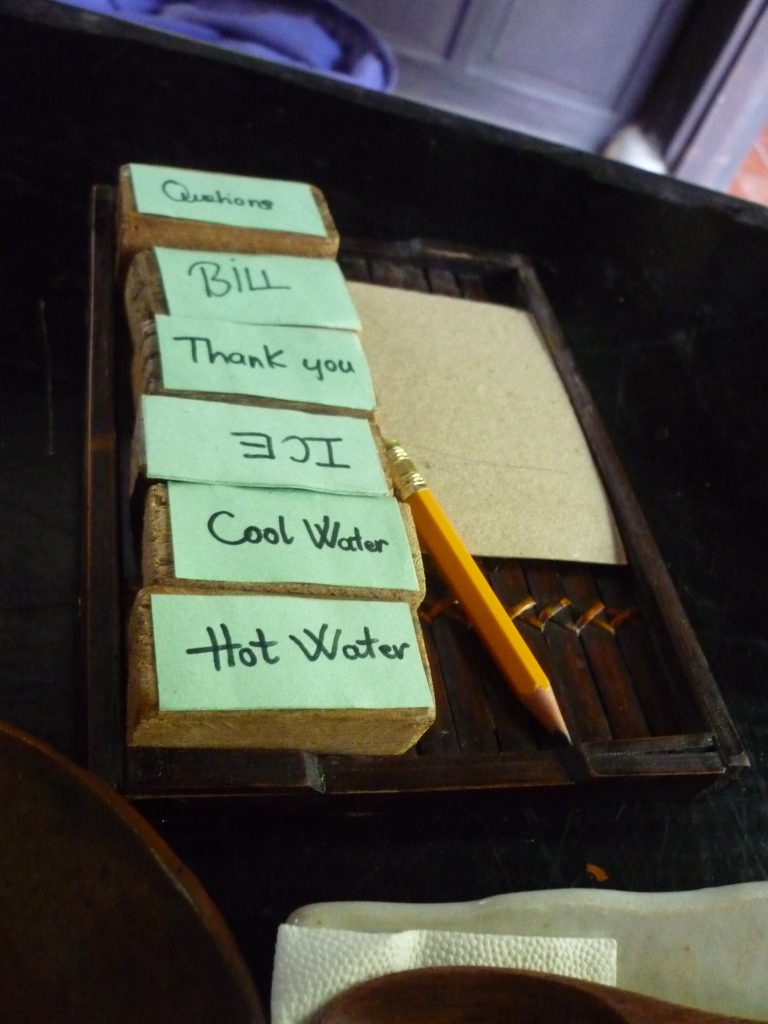 Questions
BILL
Thank you
ICE
Cool Water
Hot Water